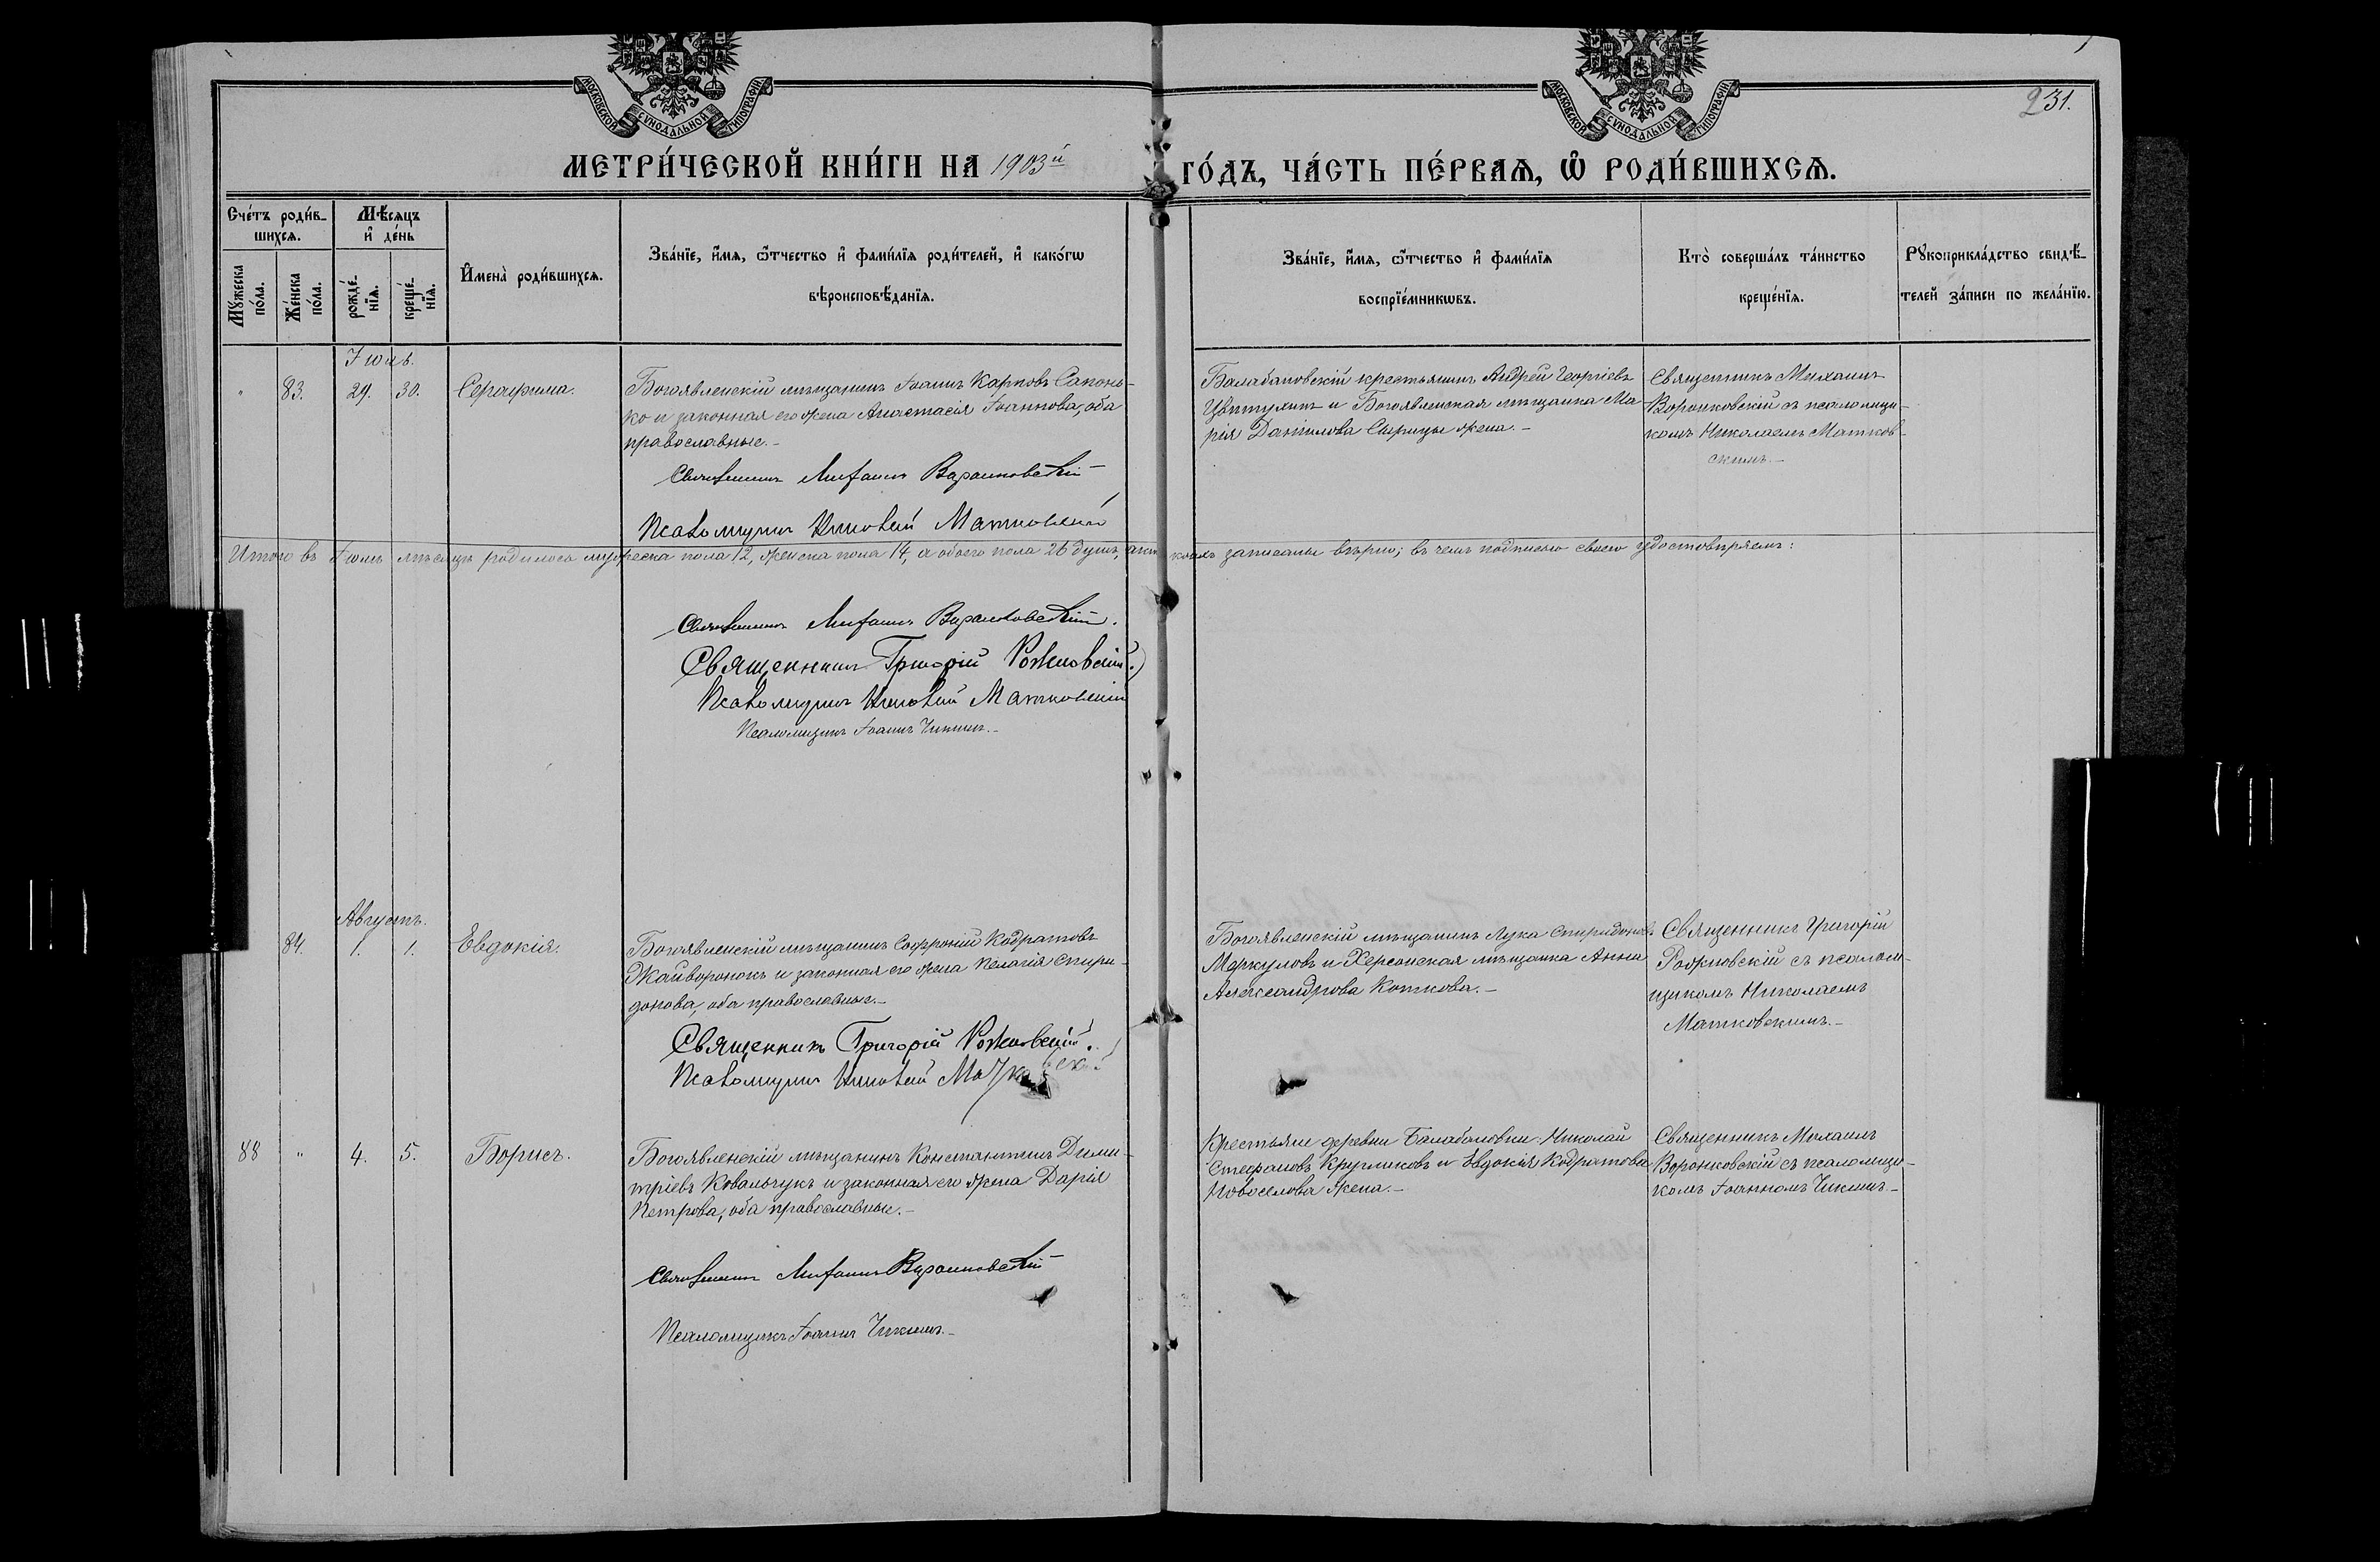 МОСКОВСКОЙ СѴНОДАЛЬНОЙ ТИПОГРАФІИ.
МОСКОВСКОЙ СѴНОДАЛЬНОЙ ТИПОГРАФІИ.
231.
МЕТРИ́ЧЕСКОЙ КНИ́ГИ НА 1903й ГО́ДЪ, ЧА́СТЬ ПЕ́РВАѦ, Ѡ҆ РОДИ́ВШИХСѦ.
Сче́тъ роди́в-
шихсѧ.
Мѣ́сѧцъ
и҆ де́нь
Мꙋ́жеска
по́ла.
Же́нска
по́ла.
рожде́-
нїѧ.
креще́-
нїѧ.
И҆мена̀ роди́вшихсѧ.
Зва́нїе, и҆́мѧ, ѻ҆́тчество и҆ фами́лїѧ роди́телей, и҆ како́гѡ
вѣроисповѣ́данїѧ.
Зва́нїе, и҆́мѧ, ѻ҆́тчество и҆ фами́лїѧ
воспрїе́мникѡвъ.
Кто̀ соверша́лъ та́инство
креще́нїѧ.
Рꙋкоприкла́дство свидѣ́-
телей за́писи по жела́нїю.
Іюль.
" 83. 29. 30. Серафима.
Богоявленскій мѣщанинъ Іоаннъ Карповъ Сапонь-
ко и законная его жена Анастасія Іоаннова, оба
православные.-
Священникъ Михаилъ Воронковскій
Псаломщикъ Николай Матковскій
Балабановскій крестьянинъ Андрей Георгіевъ
и Богоявленская мѣщанка Ма-
рія Даніилова жена.-
Священникъ Михаилъ
Воронковскій съ псаломщи-
комъ Николаемъ Матков-
скимъ.-
Итого въ Іюлѣ мѣсяцѣ родилось мужеска пола 12, женска пола 14, а обоего пола 26 душъ, акты коихъ записаны вѣрно; въ чемъ подписью своею удостовѣряемъ:
Священникъ Михаилъ Воронковскій.
Священникъ Григорій Рожковскій.
Псаломщикъ Николай Матковскій
Псаломщикъ Іоаннъ Чикинъ.-
Августъ.
84. 1. 1. Евдокія.
Богоявленскій мѣщанинъ Софроній Кодратовъ
Жайворонокъ и законная его жена Пелагія Спири-
донова, оба православные.-
Священникъ Григорій Рожковскій.
Псаломщикъ Николай Матковскій
Богоявленскій мѣщанинъ Лука Спиридоновъ
Меркуловъ и Херсонская мѣщанка Анна
Александрова Коткова.-
Священникъ Григорій
Рожковскій съ псалом-
щикомъ Николаемъ
Матковскимъ.-
88 " 4. 5. Борисъ.
Богоявленскій мѣщанинъ Константинъ Дими-
тріевъ Ковальчукъ и законная его жена Дарія
Петрова, оба православные.-
Священникъ Михаилъ Воронковскій
Псаломщикъ Іоаннъ Чикинъ.-
Крестьяне деревни Балабановки: Николай
Стефановъ Кругликовъ и Евдокія Кодратова
Новоселова жена.-
Священникъ Михаилъ
Воронковскій съ псаломщи-
комъ Іоанномъ Чикинъ.-